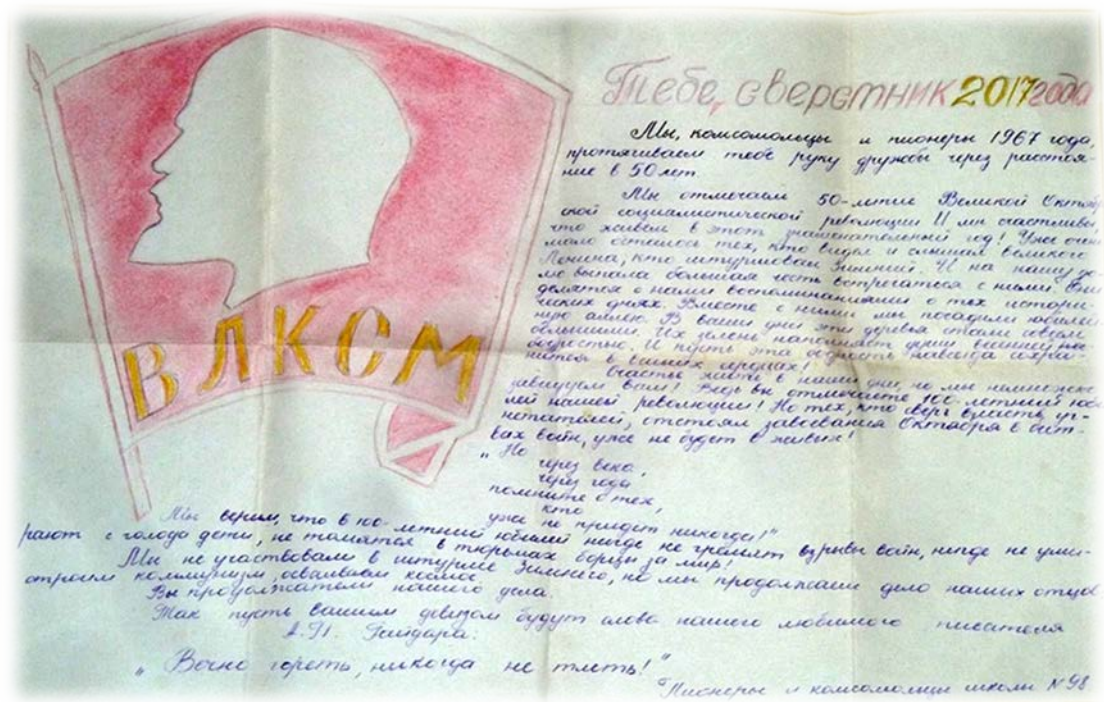 ВЛКСМ
Тебе, сверстник 2017 года
Мы, комсомольцы и пионеры 1967 года,
протягиваем тебе руку дружбы через расстоя-
ние в 50 лет.
Мы отмечаем 50-летие Великой Октябрь
ской социалистической революции И мы счастливы,
что живём в этот знаменательный год! Уже очень
мало осталось тех, кто видел и слышал великого
Ленина, кто штурмовал Зимний. И на нашу до-
лю выпала большая честь встречаться с ними. Они
делятся с нами воспоминаниями о тех истори-
ческих днях. Вместе с ними мы посадили юбилей
ную аллею. В ваши дни эти деревья стали совсем
большими. Их зелень напоминает
бодростью. И пусть эта бодрость навсегда сохра-
нится в ваших сердцах!
Счастье жить в наши дни, но мы немножко
завидуем вам! Ведь вы отмечаете 100-летний юби
лей нашей революции! Но тех, кто сверг власть уг-
нетателей, отстоял завоевания Октября в бит-
вах войн, уже не будет в живых!
„Но
через века,
через года
помните о тех,
кто
уже не придёт никогда!"
Мы верим, что в 100-летний юбилей нигде не гремят взрывы войн, нигде не уми-
рают с голода дети, не томятся в тюрьмах борцы за мир!
Мы не участвовали в штурме Зимнего, но мы продолжаем дело наших отцов
строим коммунизм, осваиваем космос.
Вы продолжатели нашего дела.
Так пусть вашим девизом будут слова нашего любимого писателя
А.П. Гайдара:
„Вечно гореть, никогда не тлеть!"
Пионеры и комсомольцы школы №98